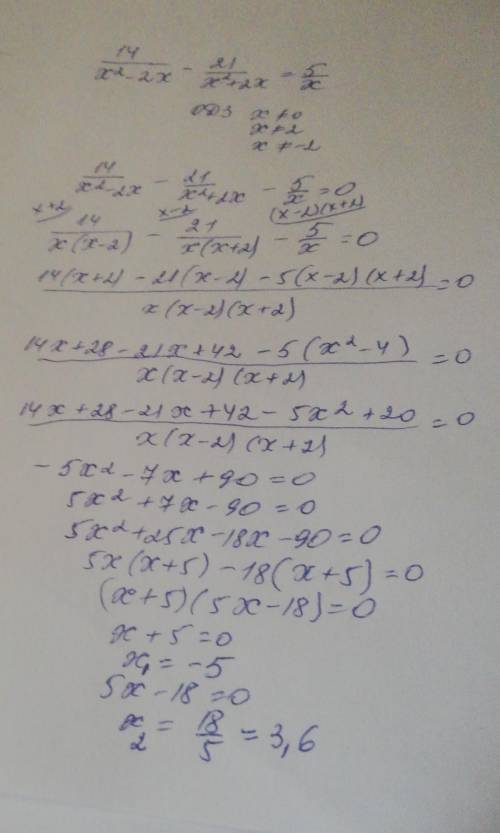 14/(x²-2x) - 21/(x²+2x) = 5/x
ОДЗ x ≠ 0
x ≠ 2
x ≠ -2
14/(x²-2x) - 21/(x²+2x) - 5/x = 0
x+2 x-2 (x-2)(x+2)
14/(x(x-2)) - 21/(x(x+2)) - 5/x = 0
(14(x+2) - 21(x-2) - 5(x-2)(x+2))/(x(x-2)(x+2)) = 0
(14x+28-21x+42-5(x²-4))/(x(x-2)(x+2)) = 0
(14x+28-21x+42-5x²+20)/(x(x-2)(x+2)) = 0
-5x²-7x+90=0
5x²+7x-90=0
5x²+25x-18x-90=0
5x(x+5)-18(x+5)=0
(x+5)(5x-18)=0
x+5=0
x₁=-5
5x-18=0
x₂ = 18/5 = 3,6